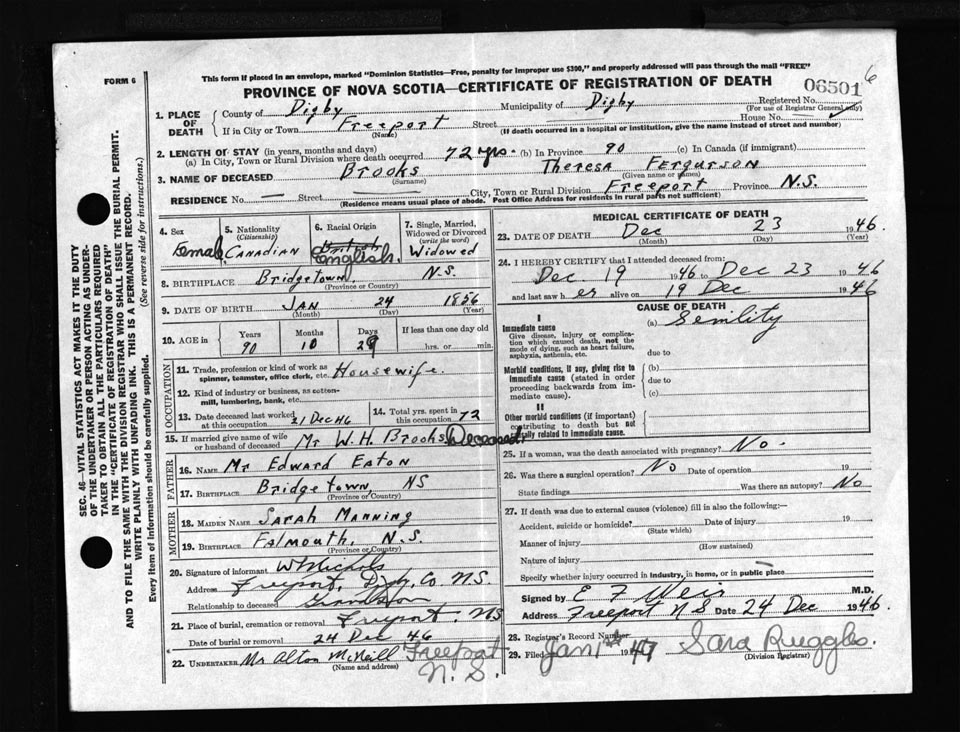 This form if placed in an envelope, marked "Dominion Statistics—Free, penalty for improper use $300," and properly addressed will pass through the mail "FREE"
FORM 6
PROVINCE OF NOVA SCOTIA—CERTIFICATE OF REGISTRATION OF DEATH
06501 6
Registered No.
(For use of Registrar General only)
1. PLACE OF DEATH
County of Digby Municipality of Digby
If in City or Town Freeport Street House No.
(Name) (If death occurred in a hospital or institution, give the name instead of street and number)
2. LENGTH OF STAY (in years, months and days)
(a) In City, Town or Rural Division where death occurred 72 yrs. (b) In Province 90 (c) In Canada (if immigrant)
3. NAME OF DECEASED Brooks Theresa Fergurson
(Surname) (Given name or names)
RESIDENCE No. — Street — City, Town or Rural Division Freeport Province N.S.
(Residence means usual place of abode. Post Office Address for residents in rural parts not sufficient)
4. Sex Female
5. Nationality (Citizenship) Canadian
6. Racial Origin British English.
7. Single, Married, Widowed or Divorced (write the word) Widowed
8. BIRTHPLACE Bridgetown, N.S.
(Province or Country)
9. DATE OF BIRTH Jan 24 1856
(Month) (Day) (Year)
10. AGE in Years Months Days If less than one day old
90 10 29 hrs. or min.
OCCUPATION
11. Trade, profession or kind of work as spinner, teamster, office clerk, etc. Housewife.
12. Kind of industry or business, as cotton-mill, lumbering, bank, etc.
13. Date deceased last worked at this occupation 21 Dec 46
14. Total yrs. spent in this occupation 72
15. If married give name of wife or husband of deceased Mr W.H. Brooks Deceased
FATHER
16. NAME Mr Edward Eaton
17. BIRTHPLACE Bridgetown, NS
(Province or Country)
MOTHER
18. MAIDEN NAME Sarah Manning
19. BIRTHPLACE Falmouth, N.S.
(Province or Country)
20. Signature of informant W Nichols
Address Freeport, Digby Co NS.
Relationship to deceased Grandson
21. Place of burial, cremation or removal Freeport. NS
Date of burial or removal 24 Dec 46
22. UNDERTAKER Mr Alton McNeill Freeport N.S.
(Name and address)
MEDICAL CERTIFICATE OF DEATH
23. DATE OF DEATH Dec 23 1946.
(Month) (Day) (Year)
24. I HEREBY CERTIFY that I attended deceased from:
Dec 19 1946 to Dec 23 1946
and last saw h er alive on 19 Dec 1946
CAUSE OF DEATH
I
Immediate cause
Give disease, injury or complication which caused death, not the mode of dying, such as heart failure, asphyxia, asthenia, etc.
(a) Senility
due to
Morbid conditions, if any, giving rise to immediate cause (stated in order proceeding backwards from immediate cause).
(b)
due to
(c)
II
Other morbid conditions (if important) contributing to death but not causally related to immediate cause.
25. If a woman, was the death associated with pregnancy? No.
26. Was there a surgical operation? No Date of operation 19
State findings Was there an autopsy? No
27. If death was due to external causes (violence) fill in also the following:—
Accident, suicide or homicide? Date of injury 19
(State which)
Manner of injury
(How sustained)
Nature of injury
Specify whether injury occurred in industry, in home, or in public place
Signed by E F Weir M.D.
Address Freeport N S Date 24 Dec 1946.
28. Registrar's Record Number
29. Filed Jan 1st 1947 Sara Ruggles.
(Division Registrar)
SEC. 46—VITAL STATISTICS ACT MAKES IT THE DUTY
OF THE UNDERTAKER OR PERSON ACTING AS UNDERTAKER TO OBTAIN ALL THE PARTICULARS REQUIRED
IN THE "CERTIFICATE OF REGISTRATION OF DEATH"
AND TO FILE THE SAME WITH THE DIVISION REGISTRAR WHO SHALL ISSUE THE BURIAL PERMIT.
WRITE PLAINLY WITH UNFADING INK. THIS IS A PERMANENT RECORD.
Every item of information should be carefully supplied. (See reverse side for instructions.)